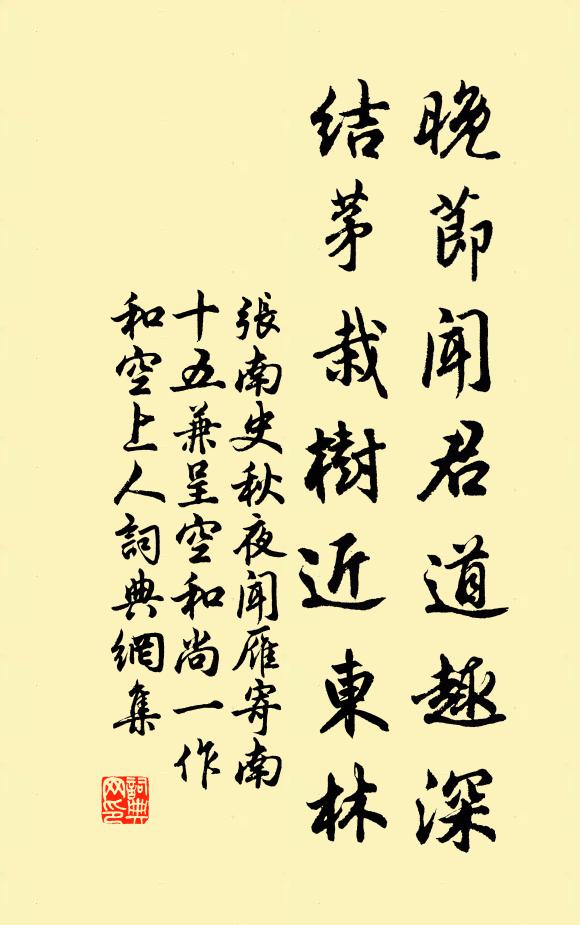 晚節聞君道趣深
結茅栽樹近東林
張南史秋夜聞雁寄南
十五兼呈空和尚一作
和空上人詞典網集
詞典
网印